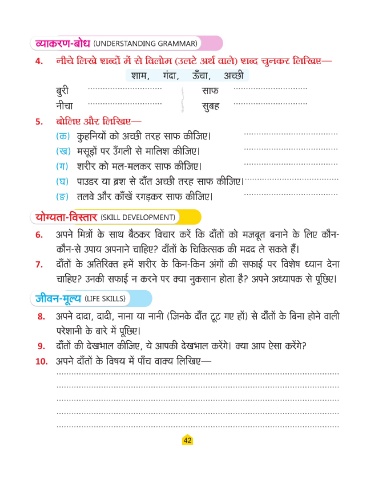 व्याकरण-बोध (UNDERSTANDING GRAMMAR)
4. नीचे लिखे शब्दों में से विलोम (उलटे अर्थ वाले) शब्द चुनकर लिखिए—
शाम, गंदा, ऊँचा, अच्छी
बुरी ........................ साफ ........................
नीचा ........................ सुबह ........................
5. बोलिए और लिखिए—
(क) कुहनियों को अच्छी तरह साफ कीजिए। ........................
(ख) मसूड़ों पर उँगली से मालिश कीजिए। ........................
(ग) शरीर को मल-मलकर साफ कीजिए। ........................
(घ) पाउडर या ब्रश से दाँत अच्छी तरह साफ कीजिए। ........................
(ङ) तलवे और काँखें रगड़कर साफ कीजिए। ........................
योग्यता-विस्तार (SKILL DEVELOPMENT)
6. अपने मित्रों के साथ बैठकर विचार करें कि दाँतों को मजबूत बनाने के लिए कौन-
कौन-से उपाय अपनाने चाहिए? दाँतों के चिकित्सक की मदद ले सकते हैं।
7. दाँतों के अतिरिक्त हमें शरीर के किन-किन अंगों की सफाई पर विशेष ध्यान देना
चाहिए? उनकी सफाई न करने पर क्या नुकसान होता है? अपने अध्यापक से पूछिए।
जीवन-मूल्य (LIFE SKILLS)
8. अपने दादा, दादी, नाना या नानी (जिनके दाँत टूट गए हों) से दाँतों के बिना होने वाली
परेशानी के बारे में पूछिए।
9. दाँतों की देखभाल कीजिए, ये आपकी देखभाल करेंगे। क्या आप ऐसा करेंगे?
10. अपने दाँतों के विषय में पाँच वाक्य लिखिए—
........................
........................
........................
........................
........................
42